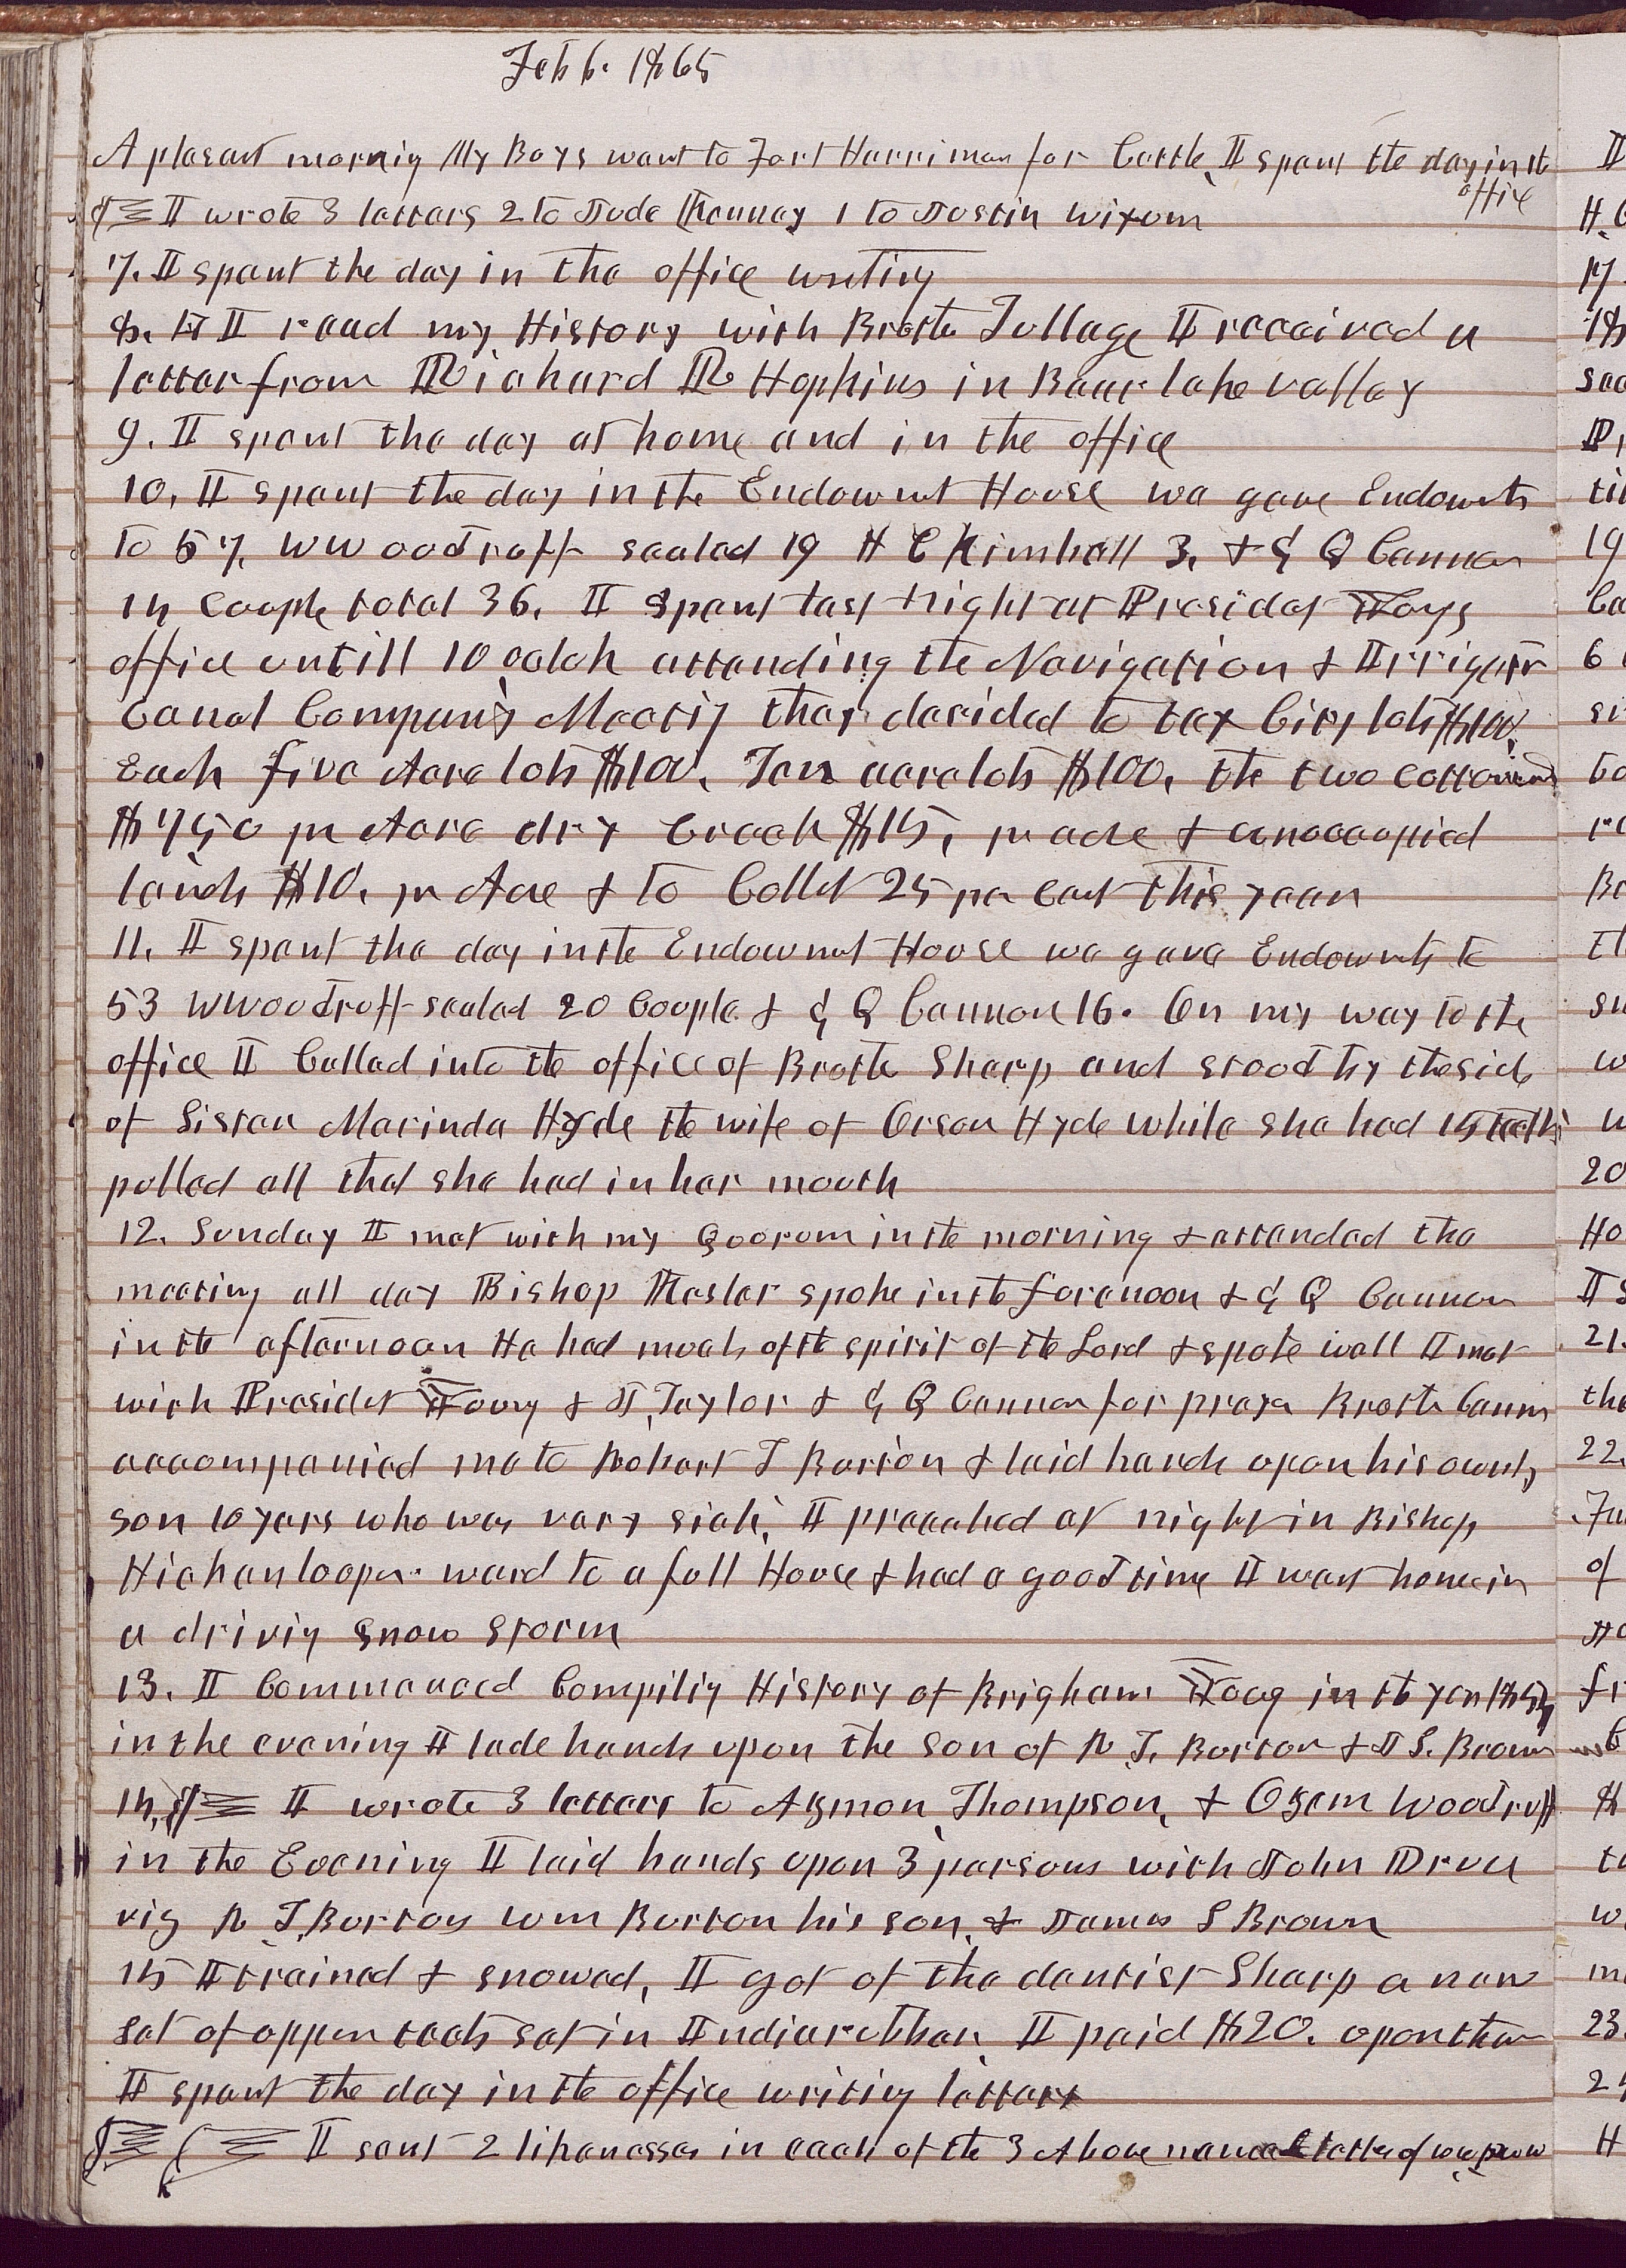 Feb 6. 1865
A plasant morning My Boys went to Fort Harriman for Cattle, I spent the day in the office
I wrote 3 letters 2 to Jude 1 to Justin Wixom
7. I spent the day in the office writing
8. I read my History with Brother Tullage I received a
letter from Richard R Hopkins in Bear lake valley
9. I spent the day at home and in the office
10, I spent the day in the Endowmet House we gave Endowmets
to 57, W Woodruff sealed 19 H C Kimball 3, & G Q Cannon
14 Couple total 36. I spent last night at Presidet Youngs
office untill 10 oclok attending the Navigation & Irrigation
Canal Company Meeting they decided to tax City lots $100,
Each five Acre lots $100, Ten acre lots $100, the two cottonwood
$7.50 pr Acre dry Creek $15, pr acre & unoccupied
lands $10, pr Acre & to Collet 25 per cent this year
11. I spent the day in the Endowmet House we gave Endowmets to
53 W Woodruff sealed 20 Couple & G Q Cannon 16. On my way to the
office I Called into the office of Brother Sharp and stood by the side
of Sister Marinda Hyde the wife of Orson Hyde while she had 15 teeth
pulled all that she had in her mouth
12. Sunday I met with my Quorum in the morning & attended the
meeting all day Bishop Kesler spoke in the forenoon & G Q Cannon
in the afternoon He had much of the spirit of the Lord & spoke well I met
with Presidet Young & J Taylor & G Q Cannon for prayer Brother Cannon
accompanied me to Robert T Burton & laid hands upon his
son 10 years who was very sick, I preached at night in Bishop
Hickenlooper ward to a full House & had a good time I went home in
a driving snow storm
13. I Commenced Compiling History of Brigham Young in the year
in the evening I lade hands upon the son of R T. Burton & J S. Brown
14, I wrote 3 letters to Azmon, Thompson, & Ozem Woodruff
in the Evening I laid hands upon 3 persons with John Druce
viz R T, Burton Wm Burton his son, & James S Brown
15 It rained & snowed, I got of the dentist Sharp a new
set of upper teeth set in India rubber I paid $20. upon them
I spent the day in the office writing letters
I sent 2 likenesses in each of the 3 Above named letters